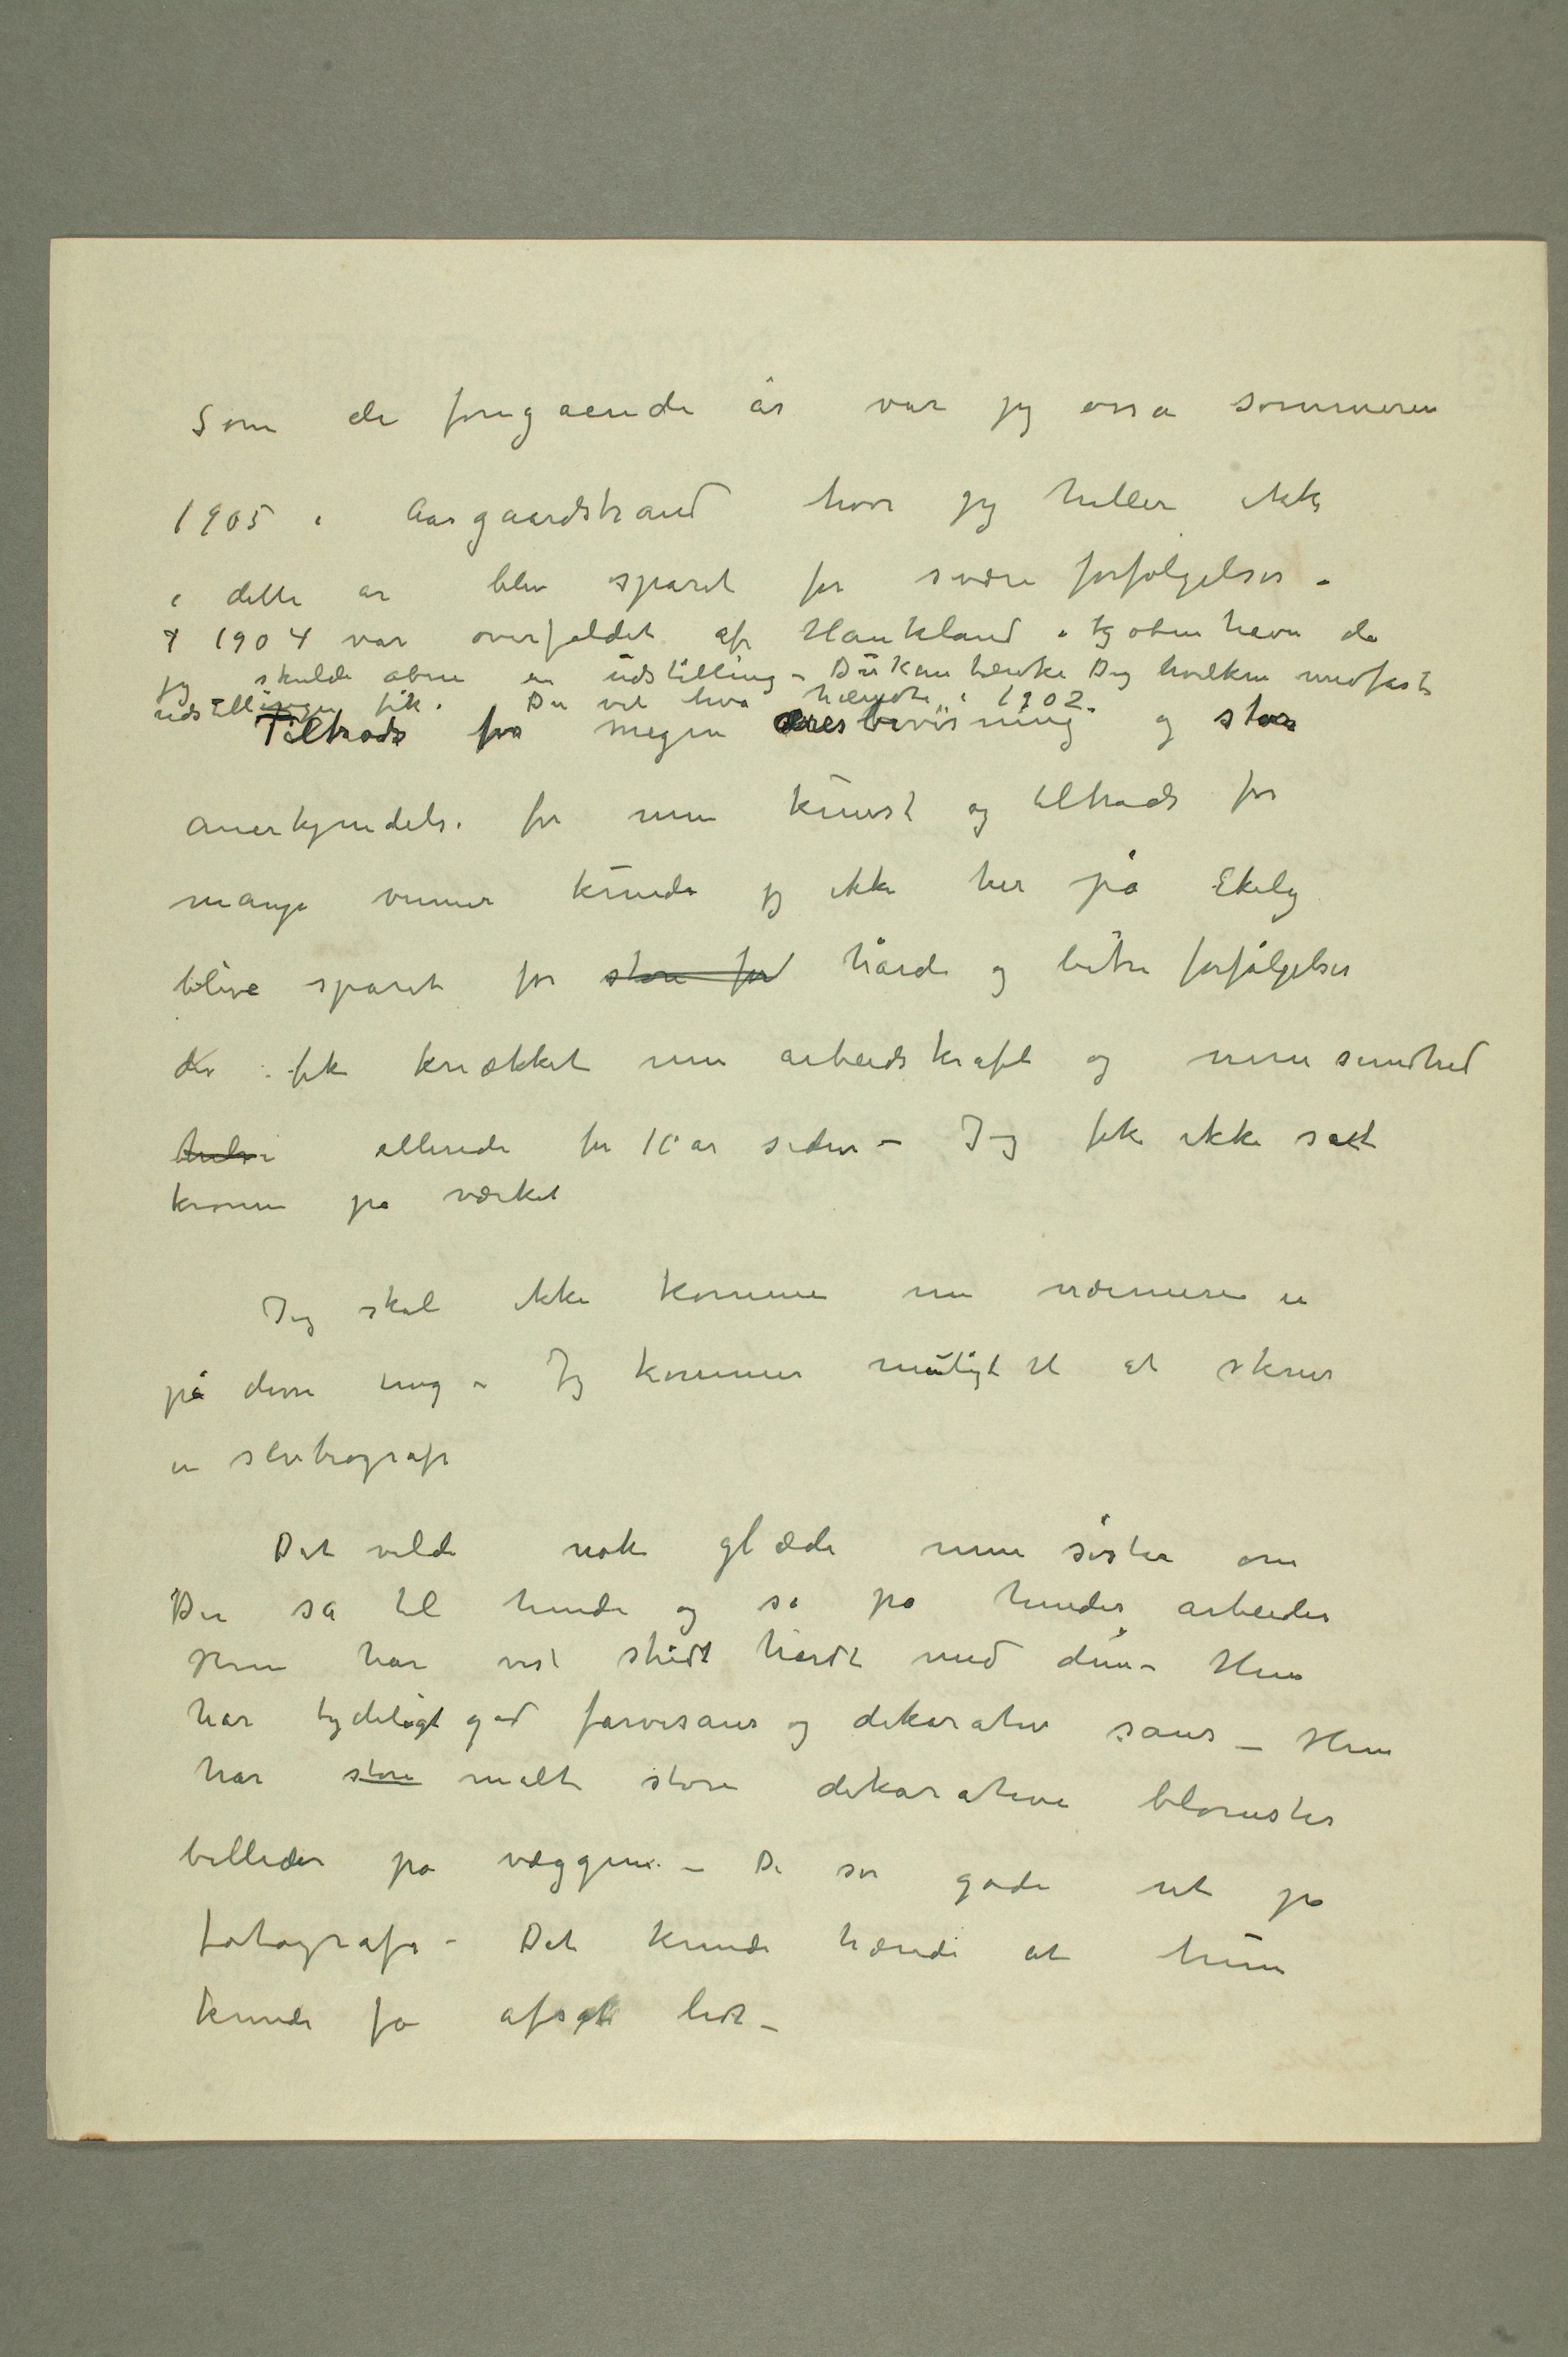 Som de foregaaende år var jeg osså sommeren
1905 i Aasgaardstrand hvor jeg heller ikke
i dette år blev sparet for svære forfølgelser –
I 1904 var overfaldet af Haukland i Kjøbenhavn da
jeg skulde åbne en udstilling – Du kan tænke Dig hvilken medfart
udstillingen fik. Du vet hva hændte i 1902.
Tiltrods for megen æresbevisning og stor
anerkjendelse for min kunst og tiltrods for
mange venner kunde jeg ikke her på Ekely
blive sparet for store for hårde og bitre forfølgelser
der fik knækket min arbeidskraft og min sundhed
allerede for 10 år siden – Jeg fik ikke satt
kronen på værket
Jeg skal ikke komme nu nærmere in
på disse ting – Jeg kommer muligt til at skrive
en selvbiografi
Det vilde nok glæde min søster om
Du så til hende og så på hendes arbeider
Hun har vist stridt hårdt med dem – Hun
har tydeligt god farvesans og dekorativ sans – Hun
har store malt store dekorative blomster
billeder på væggene – De ser gode ut på
fotografi – Det kunde hænde at hun
kunde få afsatt lidt –